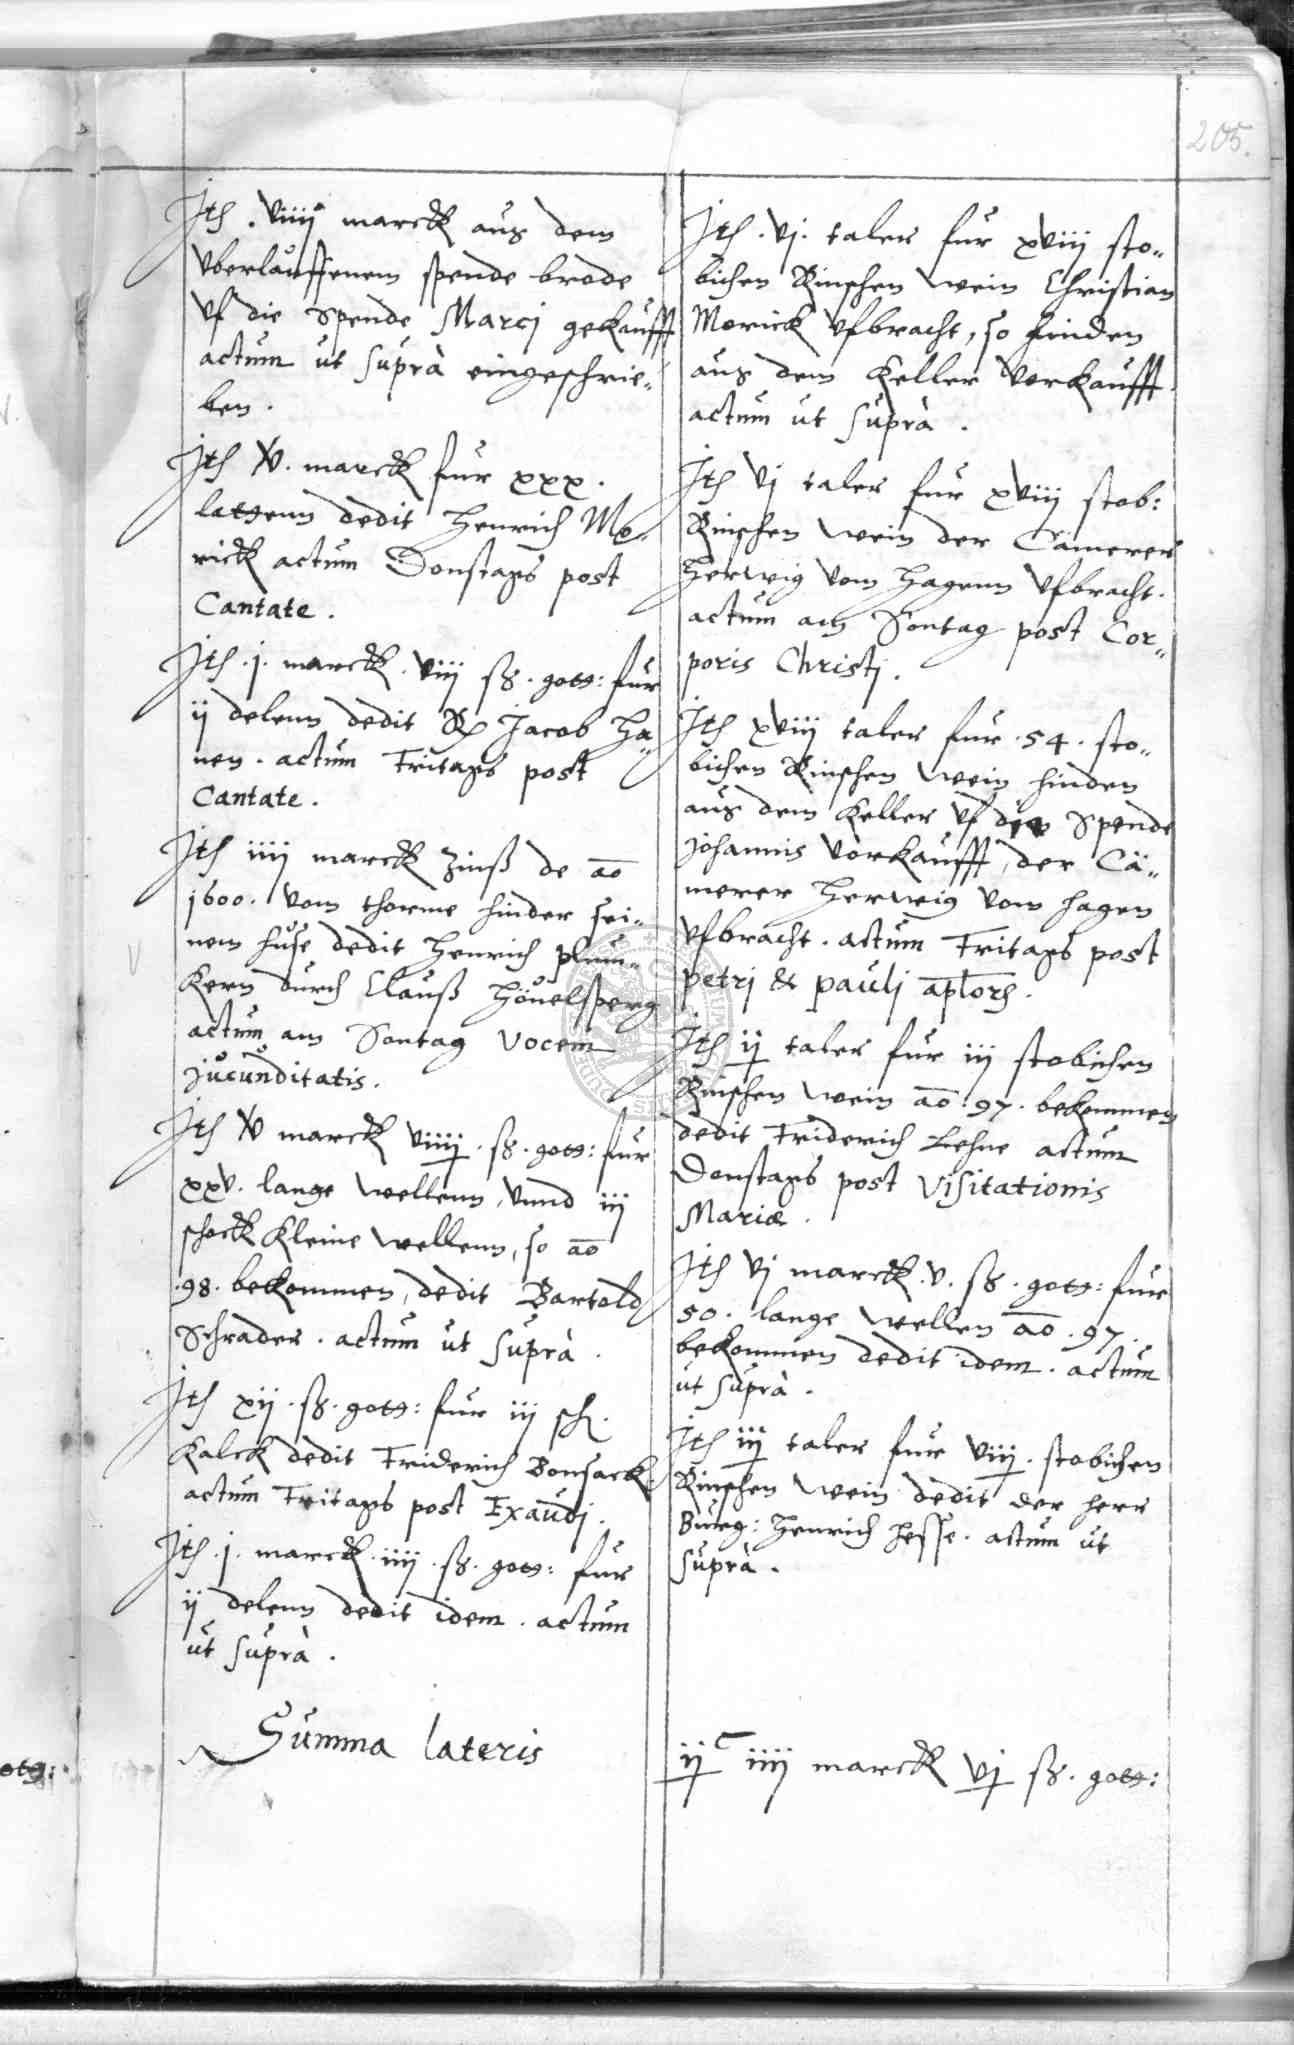 205.
Jtħ. viiij marck aus dem
vberlauffenem spende brode
vf die Spende Marcj gekaufft
actum ut suprà eingeschrie„
ben.
Jtħ v. marck fur xxx.
latzenn dedit Henrich Mo„
rick actum Donstags post
Cantate.
Jtħ. j. marck. viij sß. gotg: fur
ij delenn dedit Jacob Ha„
nen. actum Fritags post
Cantate.
Jtħ iiij marck Zinß de ao
1600. vom thorme hinder sei„
nem huse dedit Henrich Plun„
kern durch Clauß Höuelsperg
actum am Sontag Vocem
jucunditatis.
Jtħ v marck viiij. sß. gotg: fur
xxv. lange wellenn, vnnd iij
schock kleine wellenn, so ao
.98. bekommen, dedit Bartold
Schrader. actum ut suprà.
Jtħ xij. sß. gotg: fur iij sch.
Kalck dedit Friderich Bonsack.
actum Fritags post Exaudj.
Jtħ. j. marck. iiij. sß. gotg: fur
ij delenn dedit idem. actum
ut suprà.
Summa lateris
Jtħ. vj. taler fur xviij sto„
bichen Rinschen wein Christian
Morick vfbracht, so hinden
aus dem Keller verkaufft.
actum ut suprà.
Jtħ vj taler fur xviij stob:
Rinschen wein der Cämerer
Herwig vom Hagenn vfbracht.
actum am Sontag post Cor„
poris Christj.
Jtħ xviij taler fur. 54. sto„
bichen Rinschen wein hinden
aus dem Keller vf die Spende
Johannis vorkaufft, der Cä„
merer Herwig vom Hagen
vfbracht. actum Fritags post
Petrj & Paulj aplorꝫ.
Jtħ ij taler fur iij stobichen
Rinschen wein ao: 97. bekommen
dedit Friderich Lesne actum
Donstags post Visitationis
Mariæ.
Jtħ vj marck. v. sß. gotg: fur
50. lange wellen ao. 97.
bekommen dedit idem. actum
ut suprà.
Jtħ iij taler fur viij. stobichen
Rinschen wein dedit der herr
Burg: Henrich Hesse. actum ut
suprà.
ij C iiij marck vj sß. gotg: